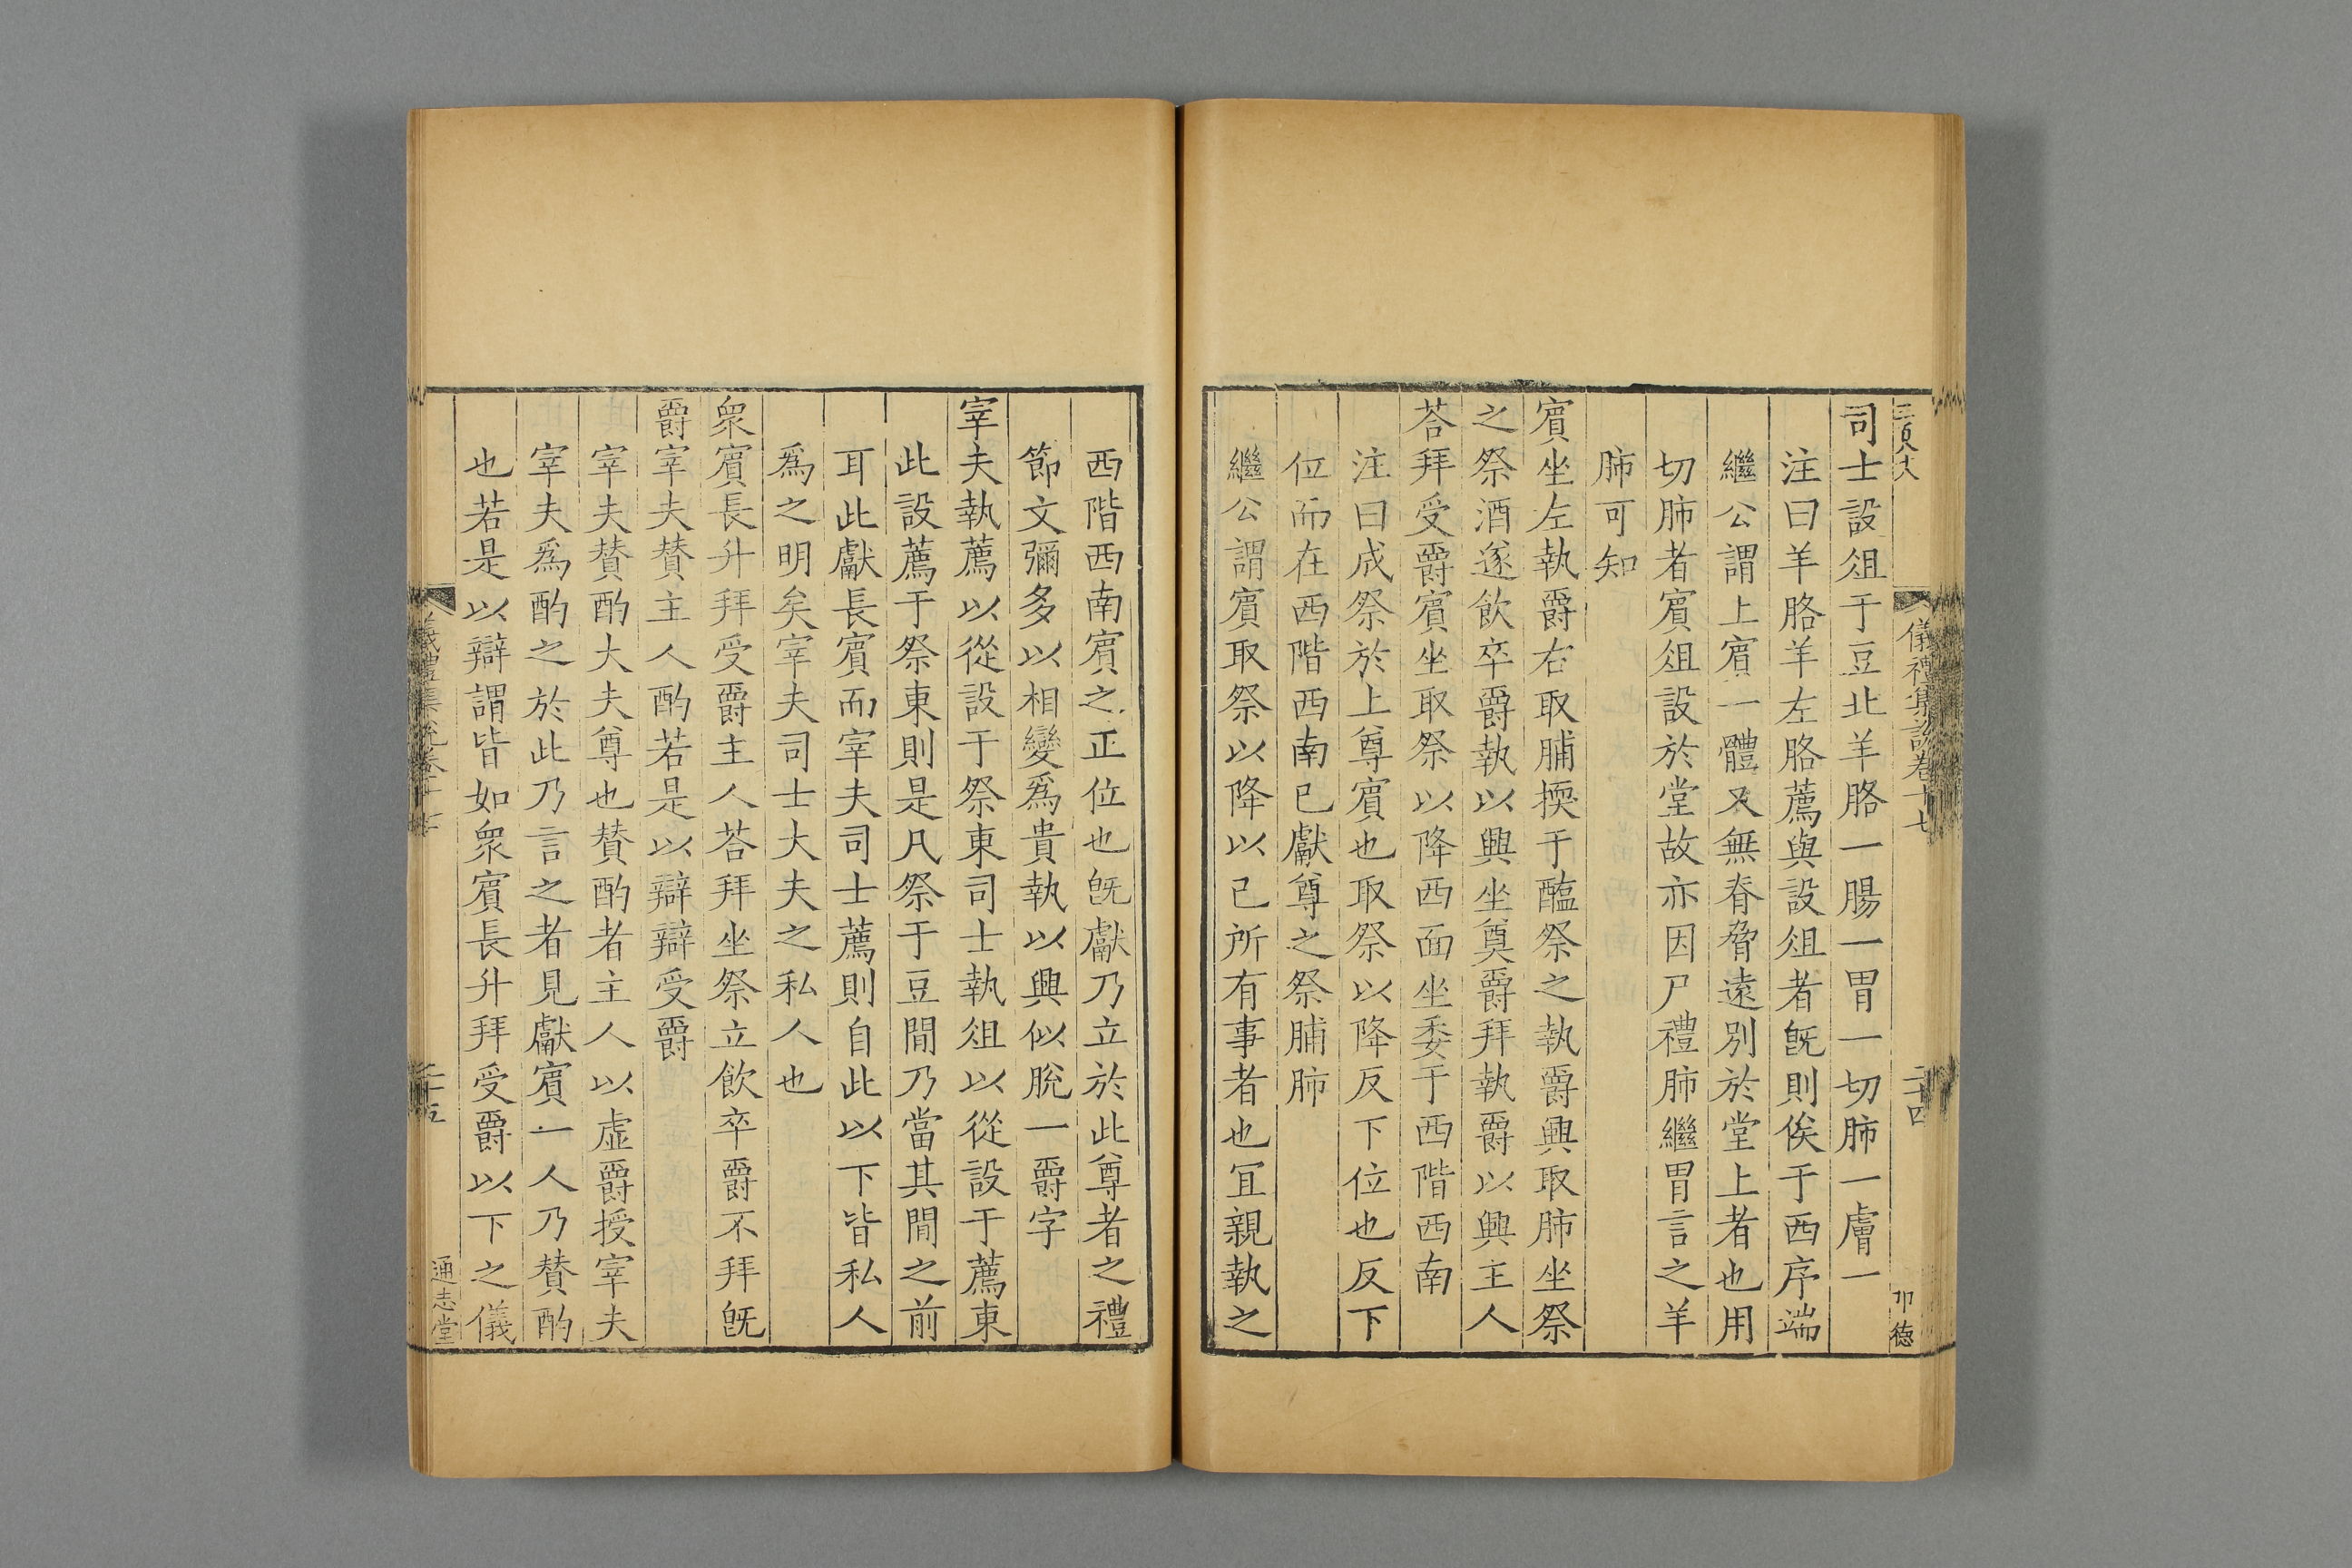 儀禮集說卷十七
二十四
司士設俎于豆北羊胳一腸一胃一切肺一膚一
注曰羊胳羊左胳薦與設俎者旣則俟于西序端
繼公謂上賓一體又無脊脅遠別於堂上者也用
切肺者賓俎設於堂故亦因尸禮肺繼胃言之羊
肺可知
賓坐左執爵右取脯擩于醢祭之執爵興取肺坐祭
之祭酒遂飲卒爵執以興坐奠爵拜執爵以興主人
荅拜受爵賓坐取祭以降西面坐委于西階西南
注曰成祭於上尊賓也取祭以降反下位也反下
位而在西階西南已獻尊之祭脯肺
繼公謂賓取祭以降以己所有事者也宜親執之
西階西南賓之正位也旣獻乃立於此尊者之禮
節文彌多以相變爲貴執以興似脫一爵字
宰夫執薦以從設于祭東司士執俎以從設于薦東
此設薦于祭東則是凡祭于豆閒乃當其閒之前
耳此獻長賓而宰夫司士薦則自此以下皆私人
爲之明矣宰夫司士大夫之私人也
衆賓長升拜受爵主人荅拜坐祭立飲卒爵不拜旣
爵宰夫贊主人酌若是以辯辯受爵
宰夫贊酌大夫尊也贊酌者主人以虛爵授宰夫
宰夫爲酌之於此乃言之者見獻賓一人乃贊酌
也若是以辯謂皆如衆賓長升拜受爵以下之儀
儀禮集說卷十七
二十五
通志堂